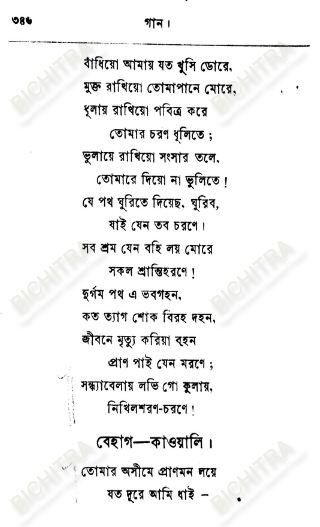 ৩৪৬
গান।
বাঁধিয়ো আমায় যত খুসি ডোরে,
মুক্ত রাখিয়ো তোমাপানে মোরে,
ধূলায় রাখিয়ো পবিত্র করে
তোমার চরণ ধূলিতে;
ভুলায়ে রাখিয়ো সংসার তলে,
তোমারে দিয়ো না ভুলিতে!
যে পথ ঘুরিতে দিয়েছ, ঘুরিব,
যাই যেন তব চরণে।
সব শ্রম যেন বহি লয় মোরে
সকল শ্রান্তিহরণে!
দুর্গম পথ এ ভবগহন,
কত ত্যাগ শোক বিরহ দহন,
জীবনে মৃত্যু করিয়া বহন
প্রাণ পাই যেন মরণে;
সন্ধ্যাবেলায় লভি গো কুলায়,
নিখিলশরণ-চরণে!
বেহাগ—কাওয়ালি।
তোমার অসীমে প্রাণমন লয়ে
যত দূরে আমি ধাই –
BICHITRA
BICHITRA
BICHITRA
BICHITRA
BICHITRA
BICHITRA